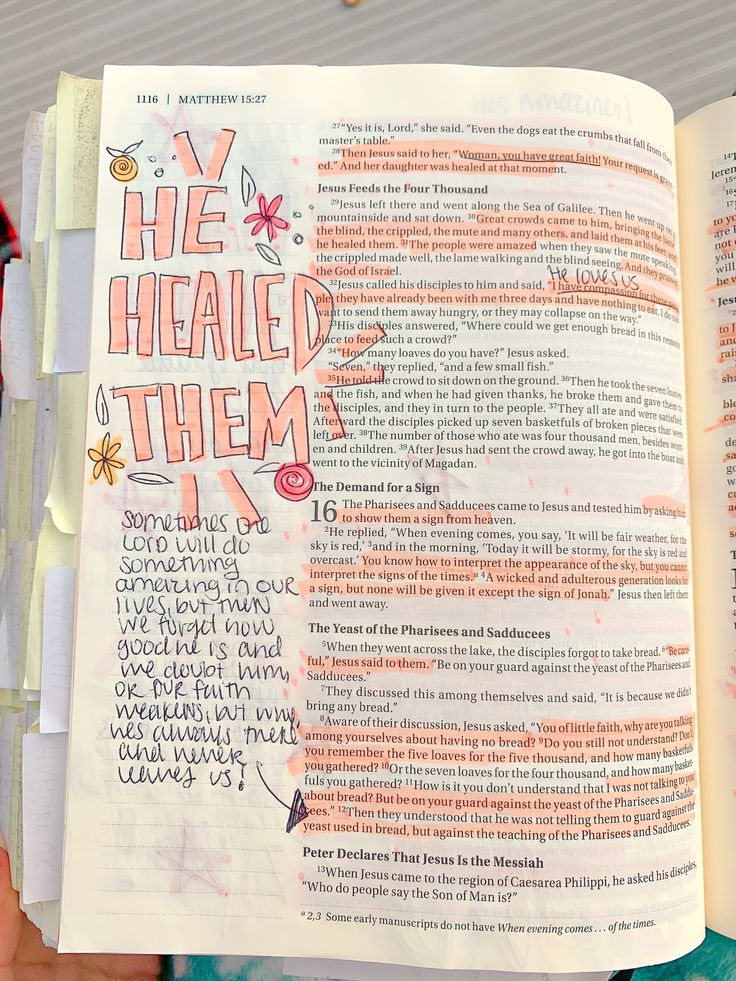 1116 | MATTHEW 15:27
HE
HEALED
THEM
sometimes the
LORD will do
something
amazing in our
lives, but then
we forget how
good he is and
we doubt him,
or our faith
weakens, but why,
he's always there
and never
leaves us!
27"Yes it is, Lord," she said. "Even the dogs eat the crumbs that fall from their
master's table."
28Then Jesus said to her, "Woman, you have great faith! Your request is
ed." And her daughter was healed at that moment.
Jesus Feeds the Four Thousand
29Jesus left there and went along the Sea of Galilee. Then he went up on a
mountainside and sat down. 30Great crowds came to him, bringing the lame,
the blind, the crippled, the mute and many others, and laid them at his feet; and
he healed them. 31The people were amazed when they saw the mute speaking,
the crippled made well, the lame walking and the blind seeing. And they praised
the God of Israel.
He loves us
32Jesus called his disciples to him and said, "I have compassion for these
ple; they have already been with me three days and have nothing to eat. I do not
want to send them away hungry, or they may collapse on the way."
33His disciples answered, "Where could we get enough bread in this remote
place to feed such a crowd?"
34"How many loaves do you have?" Jesus asked.
"Seven," they replied, "and a few small fish."
35He told the crowd to sit down on the ground. 36Then he took the seven loaves
and the fish, and when he had given thanks, he broke them and gave them to
the disciples, and they in turn to the people. 37They all ate and were satisfied.
Afterward the disciples picked up seven basketfuls of broken pieces that were
left over. 38The number of those who ate was four thousand men, besides wom-
en and children. 39After Jesus had sent the crowd away, he got into the boat and
went to the vicinity of Magadan.
The Demand for a Sign
16 The Pharisees and Sadducees came to Jesus and tested him by asking him
to show them a sign from heaven.
2He replied, "When evening comes, you say, 'It will be fair weather, for the
sky is red,' 3and in the morning, 'Today it will be stormy, for the sky is red and
overcast.' You know how to interpret the appearance of the sky, but you cannot
interpret the signs of the times.a 4A wicked and adulterous generation looks for
a sign, but none will be given it except the sign of Jonah." Jesus then left them
and went away.
The Yeast of the Pharisees and Sadducees
5When they went across the lake, the disciples forgot to take bread. 6"Be care-
ful," Jesus said to them. "Be on your guard against the yeast of the Pharisees and
Sadducees."
7They discussed this among themselves and said, "It is because we didn't
bring any bread."
8Aware of their discussion, Jesus asked, "You of little faith, why are you talking
among yourselves about having no bread? 9Do you still not understand? Don't
you remember the five loaves for the five thousand, and how many basketfuls
you gathered? 10Or the seven loaves for the four thousand, and how many basket-
fuls you gathered? 11How is it you don't understand that I was not talking to you
about bread? But be on your guard against the yeast of the Pharisees and Saddu-
cees." 12Then they understood that he was not telling them to guard against the
yeast used in bread, but against the teaching of the Pharisees and Sadducees.
Peter Declares That Jesus Is the Messiah
13When Jesus came to the region of Caesarea Philippi, he asked his disciples,
"Who do people say the Son of Man is?"
a 2,3 Some early manuscripts do not have When evening comes . . . of the times.